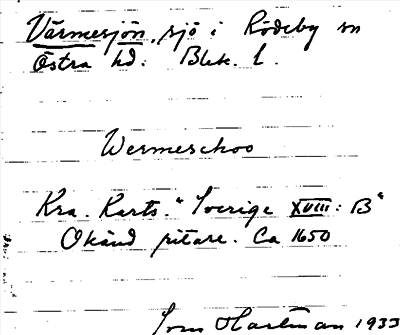 Värmesjön, sjö i Rödeby sn
Östra hd. Blek. l.
Wermerschoo
Kra. Karts. "Sverige XVIII: B"
Okänd ritare. Ca 1650
Hartman 1933